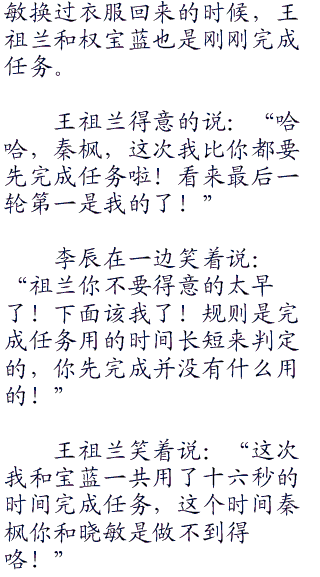 敏换过衣服回来的时候，王
祖兰和权宝蓝也是刚刚完成
任务。
王祖兰得意的说：“哈
哈，秦枫，这次我比你都要
先完成任务啦！看来最后一
轮第一是我的了！”
李辰在一边笑着说：
“祖兰你不要得意的太早
了！下面该我了！规则是完
成任务用的时间长短来判定
的，你先完成并没有什么用
的！”
王祖兰笑着说：“这次
我和宝蓝一共用了十六秒的
时间完成任务，这个时间秦
枫你和晓敏是做不到得
咯！”